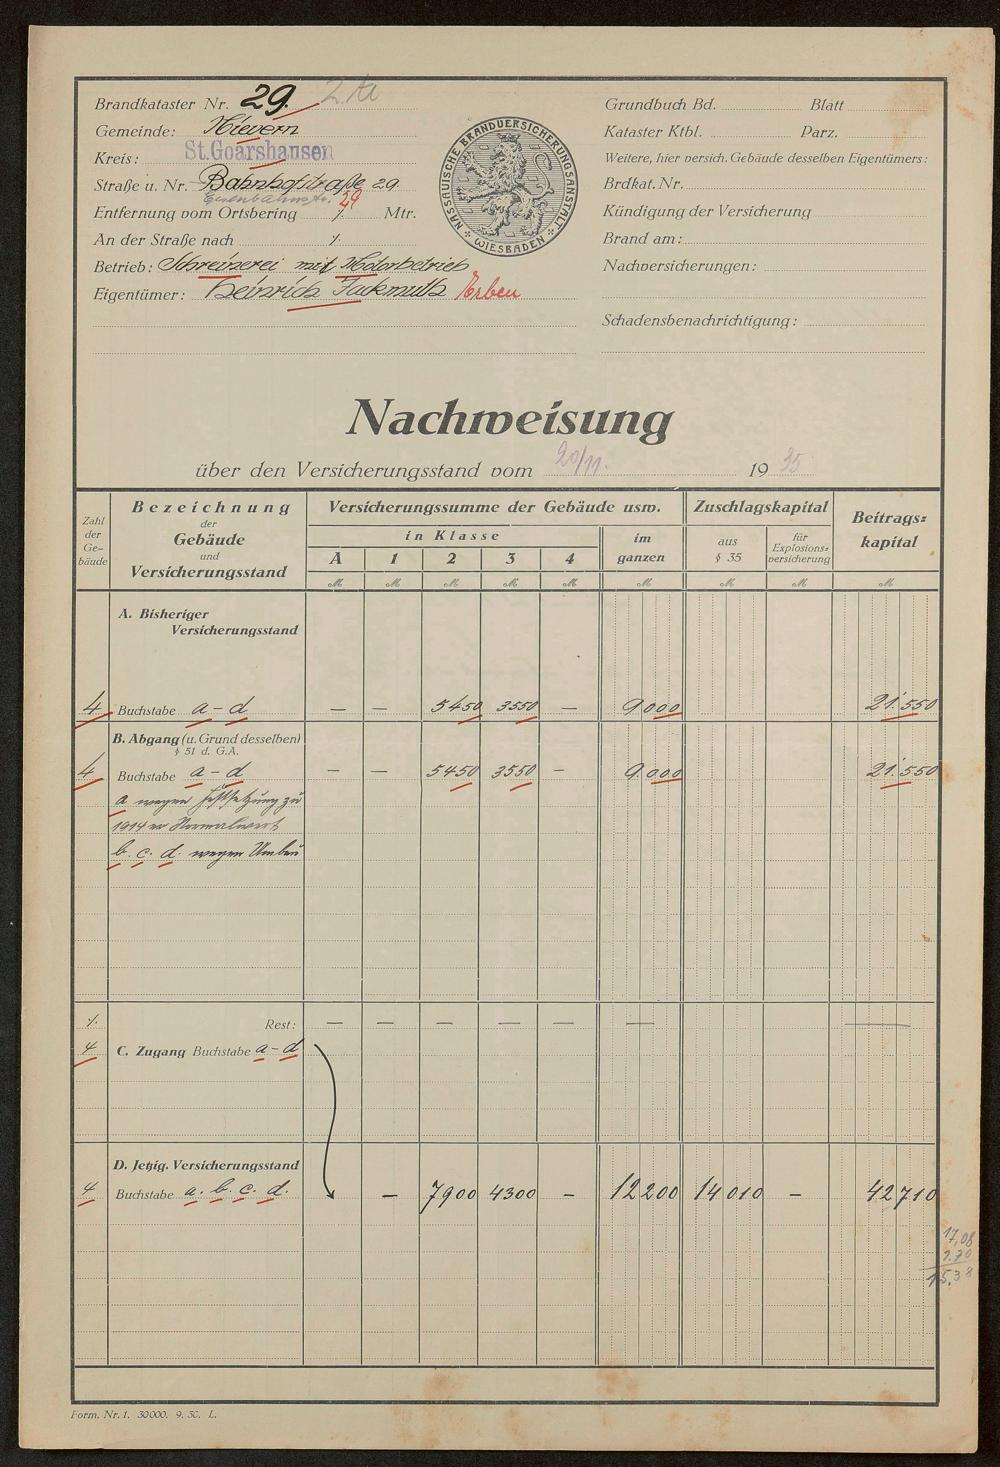 Brandkataster Nr. 29.
Gemeinde: Nievern
Kreis: St. Goarshausen
Straße u. Nr. Bahnhofstraße 29
Eisenbahnstr. 29
Entfernung vom Ortsbering ./. Mtr.
An der Straße nach ./.
Betrieb: Schreinerei mit Motorbetrieb
Eigentümer: Heinrich Erben
NASSAUISCHE BRANDVERSICHERUNGSANSTALT
WIESBADEN
Grundbuch Bd. Blatt
Kataster Ktbl. Parz.
Weitere, hier versich. Gebäude desselben Eigentümers:
Brdkat. Nr.
Kündigung der Versicherung
Brand am:
Nachversicherungen:
Schadensbenachrichtigung:
Nachweisung
über den Versicherungsstand vom 20/11. 1935
Zahl der Ge-bäude
Bezeichnung der Gebäude und Versicherungsstand
Versicherungssumme der Gebäude usw.
in Klasse
A 1 2 3 4
im ganzen
Zuschlagskapital
aus § 35
für Explosions-versicherung
Beitrags-kapital
M M M M M M M M M
A. Bisheriger
Versicherungsstand
4 Buchstabe a-d — — 5450 3550 — 9000 21.550
B. Abgang (u. Grund desselben)
§ 51 d. G.A.
4 Buchstabe a-d — — 5450 3550 — 9.000 21.550
a wegen Festsetzung zu
1914er Normalwert
b. c. d. wegen Umbau
./. Rest: — — — — — — —
4 C. Zugang Buchstabe a-d
D. Jetzig. Versicherungsstand
4 Buchstabe a. b. c. d. — 7900 4300 — 12200 14010 — 42710
17,08
1.70
15,38
Form. Nr. 1. 30000. 9. 30. L.